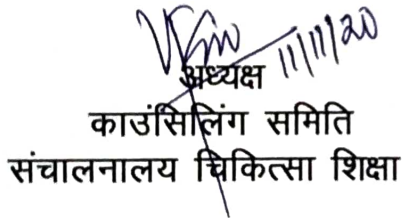 11/11/20
अध्यक्ष
काउंसिलिंग समिति
संचालनालय चिकित्सा शिक्षा